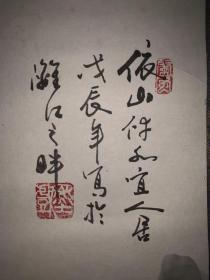 依山傍水宜人居
戊辰年写於
漓江之畔